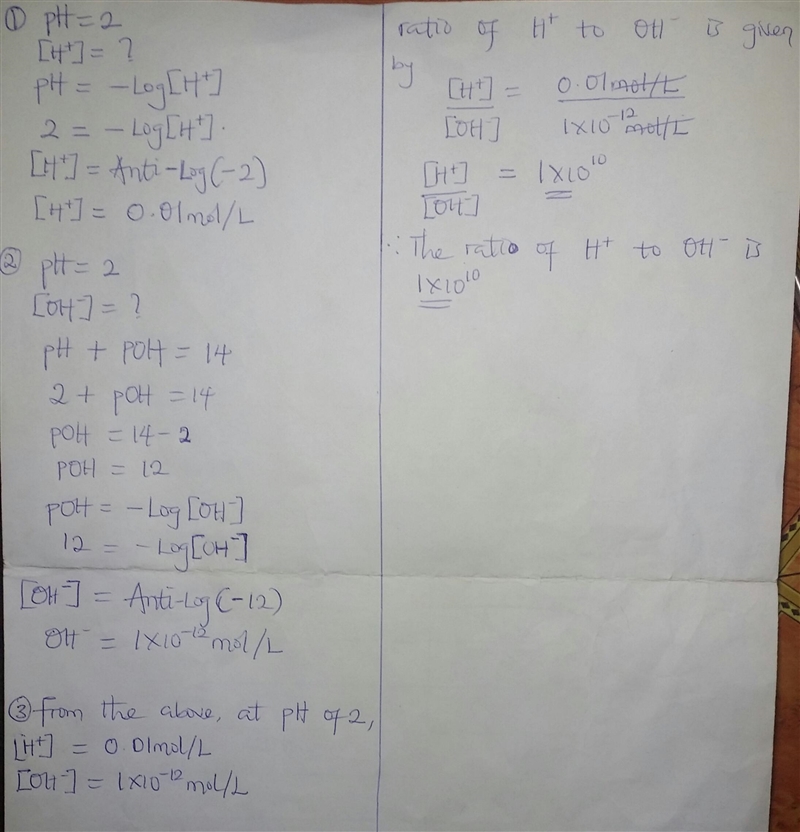 ① pH = 2
[H⁺] = ?
pH = -Log[H⁺]
2 = -Log[H⁺].
[H⁺] = Anti-Log(-2)
[H⁺] = 0.01mol/L
② pH = 2
[OH⁻] = ?
pH + POH = 14
2 + pOH = 14
POH = 14 - 2
POH = 12
POH = -Log[OH⁻]
12 = -Log[OH⁻]
[OH⁻] = Anti-Log(-12)
OH⁻ = 1X10⁻¹² mol/L
③ from the above, at pH of 2,
[H⁺] = 0.01mol/L
[OH⁻] = 1X10⁻¹² mol/L
ratio of H⁺ to OH⁻ is given
by
[H⁺] = 0.01mol/L
[OH⁻] 1X10⁻¹² mol/L
[H⁺] = 1X10¹⁰
[OH⁻]
∴ The ratio of H⁺ to OH⁻ is
1X10¹⁰